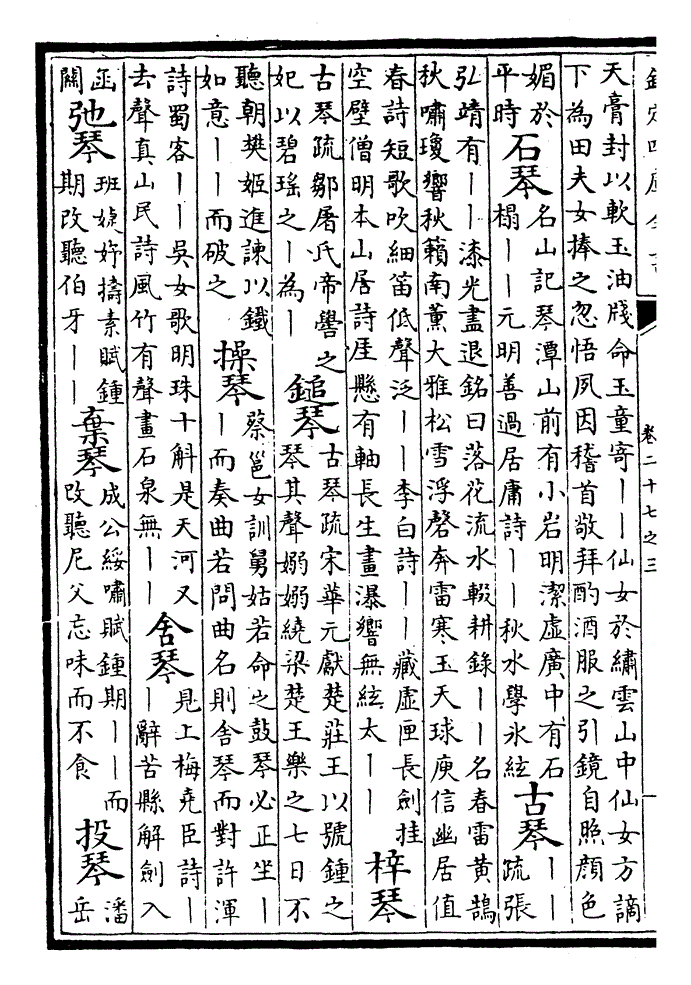 卷二十七之三
天膏封以軟玉油牋命玉童寄丨丨仙女於繡雲山中仙女方謫
下為田夫女捧之忽悟夙因稽首敬拜酌酒服之引鏡自照顔色
媚於
平時
石琴
名山記琴潭山前有小岩明潔虛廣中有石
榻丨丨元明善過居庸詩丨丨秋水學氷絃
古琴
丨丨
疏張
弘靖有丨丨漆光盡退銘曰落花流水輟耕錄丨丨名春雷黃鵠
秋嘯瓊響秋籟南薰大雅松雪浮磬奔雷寒玉天球庾信幽居值
春詩短歌吹細笛低聲泛丨丨李白詩丨丨藏虛匣長劍挂
空壁僧明本山居詩厓懸有軸長生畫瀑響無絃太丨丨
梓琴
古琴疏鄒屠氏帝嚳之
妃以碧瑤之丨為丨
鎚琴
古琴疏宋華元獻楚莊王以號鍾之
琴其聲嫋嫋繞梁楚王樂之七日不
聽朝樊姬進諫以鐵
如意丨丨而破之
操琴
蔡邕女訓舅姑若命之鼓琴必正坐丨
丨而奏曲若問曲名則舍琴而對許渾
詩蜀客丨丨吳女歌明珠十斛是天河又
去聲真山民詩風竹有聲畫石泉無丨丨
舍琴
見上梅堯臣詩丨
丨辭苦縣解劍入
函
關
弛琴
班婕妤擣素賦鍾
期改聽伯牙丨丨
棄琴
成公綏嘯賦鍾期丨丨而
改聽尼父忘味而不食
投琴
潘
岳